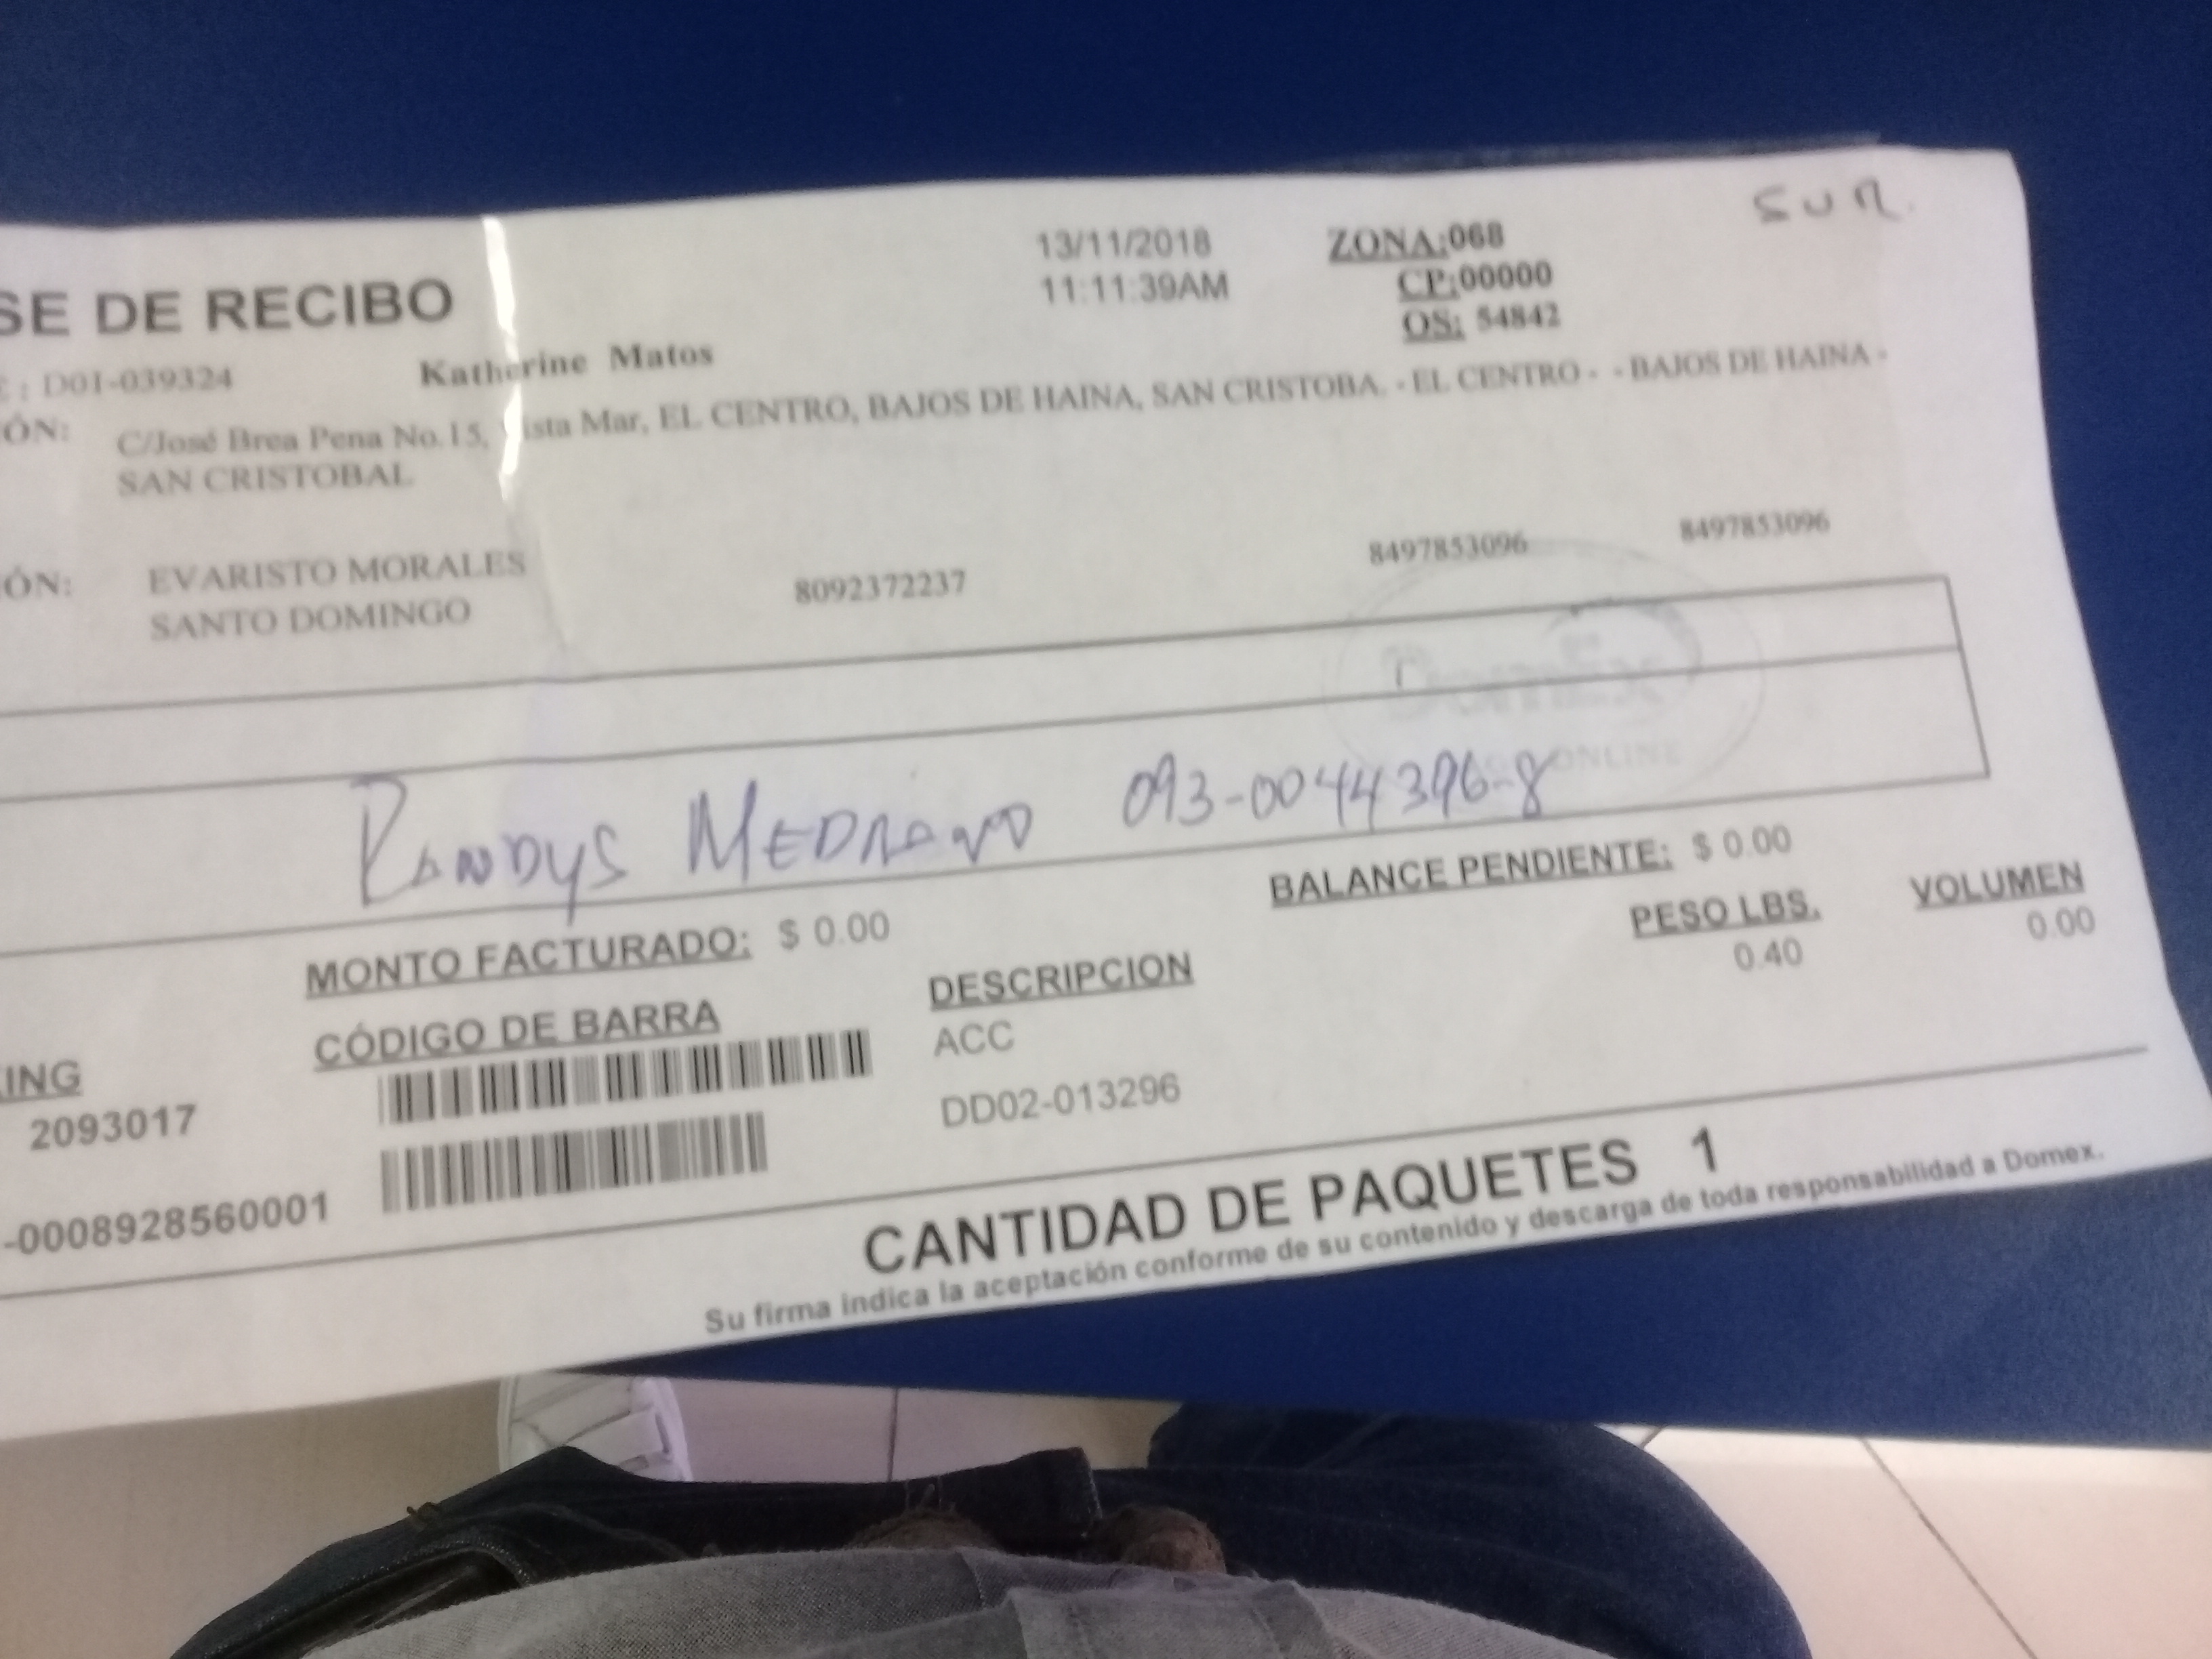 SE DE RECIBO
13/11/2018
11:11:39AM
ZONA:068
CP:00000
OS: 54842
Sur.
E : D01-039324 Katherine Matos
ÓN: C/José Brea Pena No.15, ista Mar, EL CENTRO, BAJOS DE HAINA, SAN CRISTOBA. - EL CENTRO - - BAJOS DE HAINA -
SAN CRISTOBAL
8092372237 8497853096 8497853096
ÓN: EVARISTO MORALES
SANTO DOMINGO
ONLINE
Randys MEDRANO 093-0044396-8
MONTO FACTURADO: $ 0.00 BALANCE PENDIENTE: $ 0.00
ING CÓDIGO DE BARRA DESCRIPCION PESO LBS. VOLUMEN
2093017 ACC 0.40 0.00
-0008928560001 DD02-013296
CANTIDAD DE PAQUETES 1
Su firma indica la aceptación conforme de su contenido y descarga de toda responsabilidad a Domex.